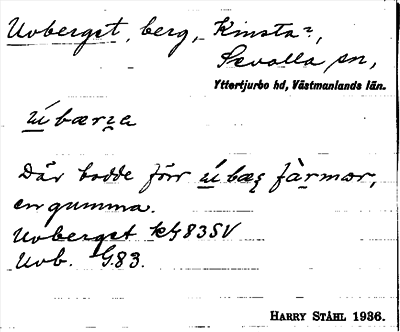 Uvberget, berg, Kinsta²,
Sevalla sn,
Yttertjurbo hd, Västmanlands län.
úbærʒa
Där bodde förr úbæʒ fàrmor,
en gumma.
Uvberget kG83SV
Uvb. G.83.
HARRY STÅHL 1936.